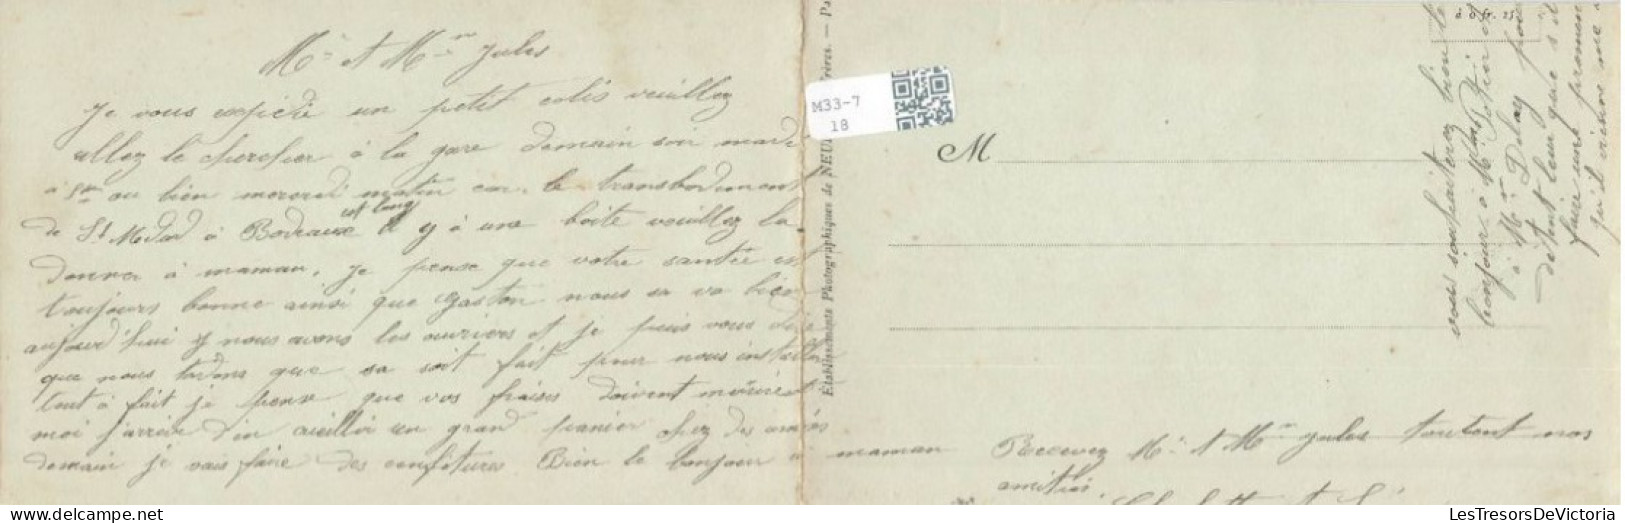 Mr et Mme Jules
Je vous expédie un petit colis veuillez
allez le chercher à la gare demain soir mardi
à 5h ou bien mercredi matin car le transbordement
de St Medard à Bordeaux est long il y à une boite veuillez la
donner à maman. Je pense que votre santée est
toujours bonne ainsi que Gaston nous sa va bien
aujourd'hui y nous avons les ouvriers et je puis vous dire
que nous tardons que sa soit fait pour nous installer
tout à fait je pense que vos fraises doivent mûrirent
moi j'arrive d'en cueillir un grand panier chez des amies
demain je vais faire des confitures. Bien le bonjour à maman
Recevez Mr et Mme Jules toutent nos
amitiés.
vous souhaiterez bien le
bonjour à Mr Potier
à Mme Delay pour
detent leur que s
faire une promen
qu'il vienne me
Établissements Photographiques de NEU Frères. — Pa
à 0 fr. 25
M33-7
18
M
LesTresorsDeVictoria
https://www.delcampe.net/fr/collections/stores/LesTresorsDeVictoria